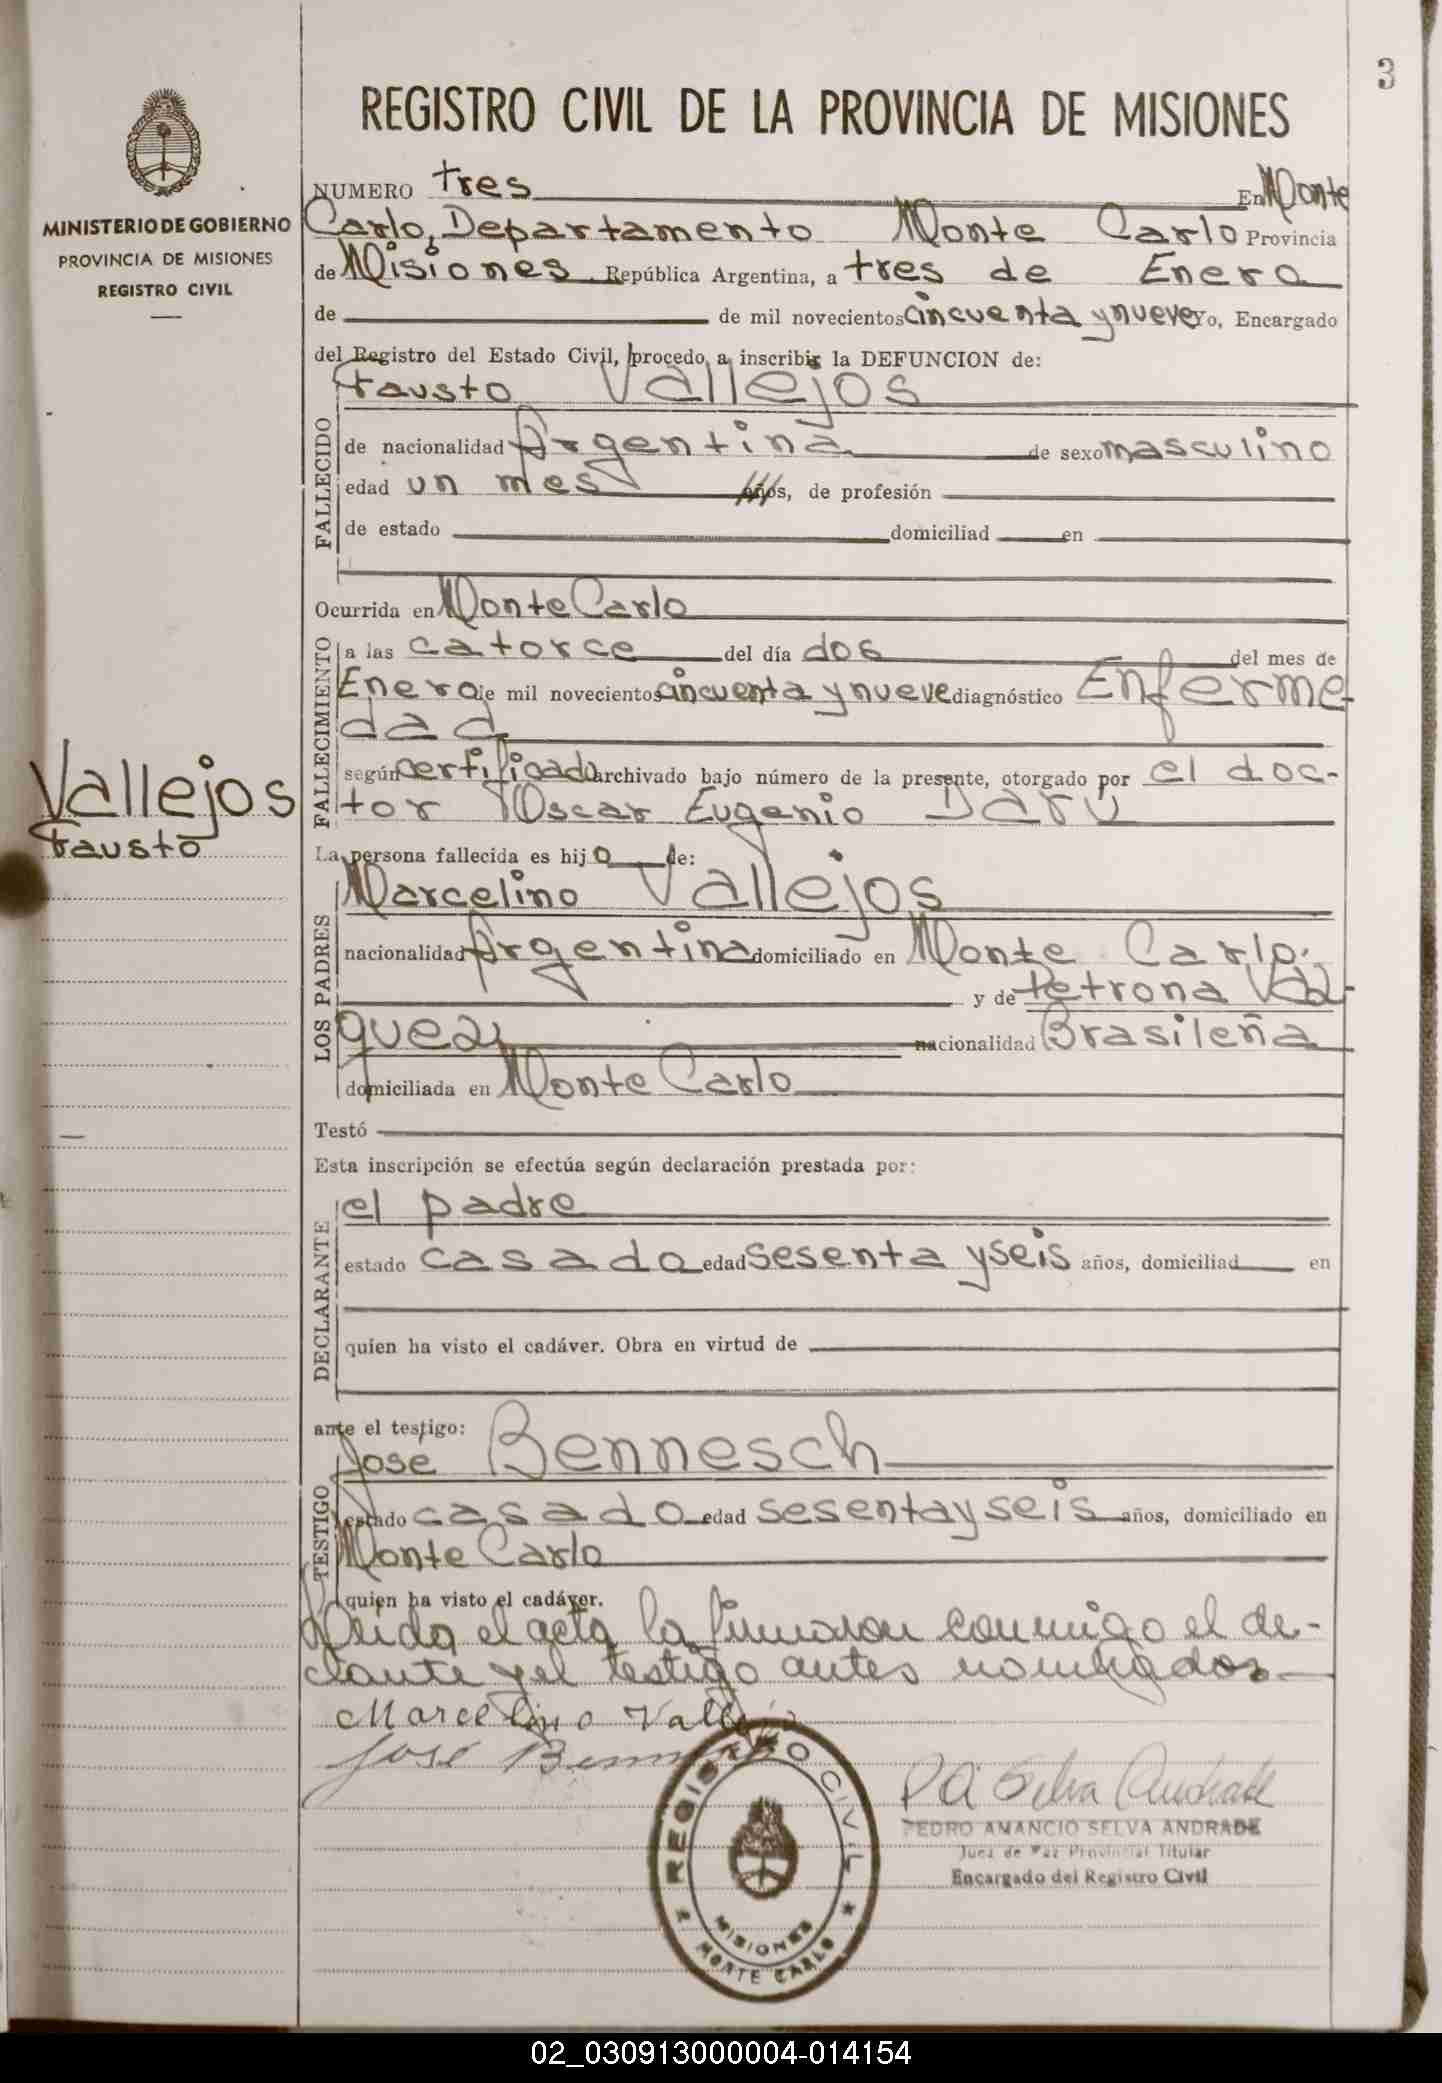 3
REGISTRO CIVIL DE LA PROVINCIA DE MISIONES
MINISTERIO DE GOBIERNO
PROVINCIA DE MISIONES
REGISTRO CIVIL
NUMERO tres En Monte
Carlo, Departamento Monte Carlo Provincia
de Misiones República Argentina, a tres de Enero
de de mil novecientos cincuenta y nueve yo, Encargado
del Registro del Estado Civil, procedo a inscribir la DEFUNCION de:
Fausto Vallejos
FALLECIDO
de nacionalidad Argentina de sexo masculino
edad un mes años, de profesión
de estado domiciliad en
Ocurrida en Monte Carlo
FALLECIMIENTO
a las catorce del día dos del mes de
Enero de mil novecientos cincuenta y nueve diagnóstico Enferme-
dad
según certificado archivado bajo número de la presente, otorgado por el doc-
tor Oscar Eugenio Darú
Vallejos
Fausto
La persona fallecida es hijo de:
LOS PADRES
Marcelino Vallejos
nacionalidad Argentina domiciliado en Monte Carlo.
y de Petrona
quez nacionalidad Brasileña
domiciliada en Monte Carlo
Testó
Esta inscripción se efectúa según declaración prestada por:
DECLARANTE
el padre
estado casado edad sesenta y seis años, domiciliad en
quien ha visto el cadáver. Obra en virtud de
ante el testigo:
TESTIGO
Jose Bennesch
estado casado edad sesenta y seis años, domiciliado en
Monte Carlo
quien ha visto el cadáver.
Leida el acta la firmaron conmigo el de-
clante y el testigo antes nombrados
Marcelino Vallejos
José
REGISTRO CIVIL
MISIONES
MONTE CARLO
P A Selva Andrade
PEDRO AMANCIO SELVA ANDRADE
Juez de Paz Provincial Titular
Encargado del Registro Civil
02_030913000004-014154